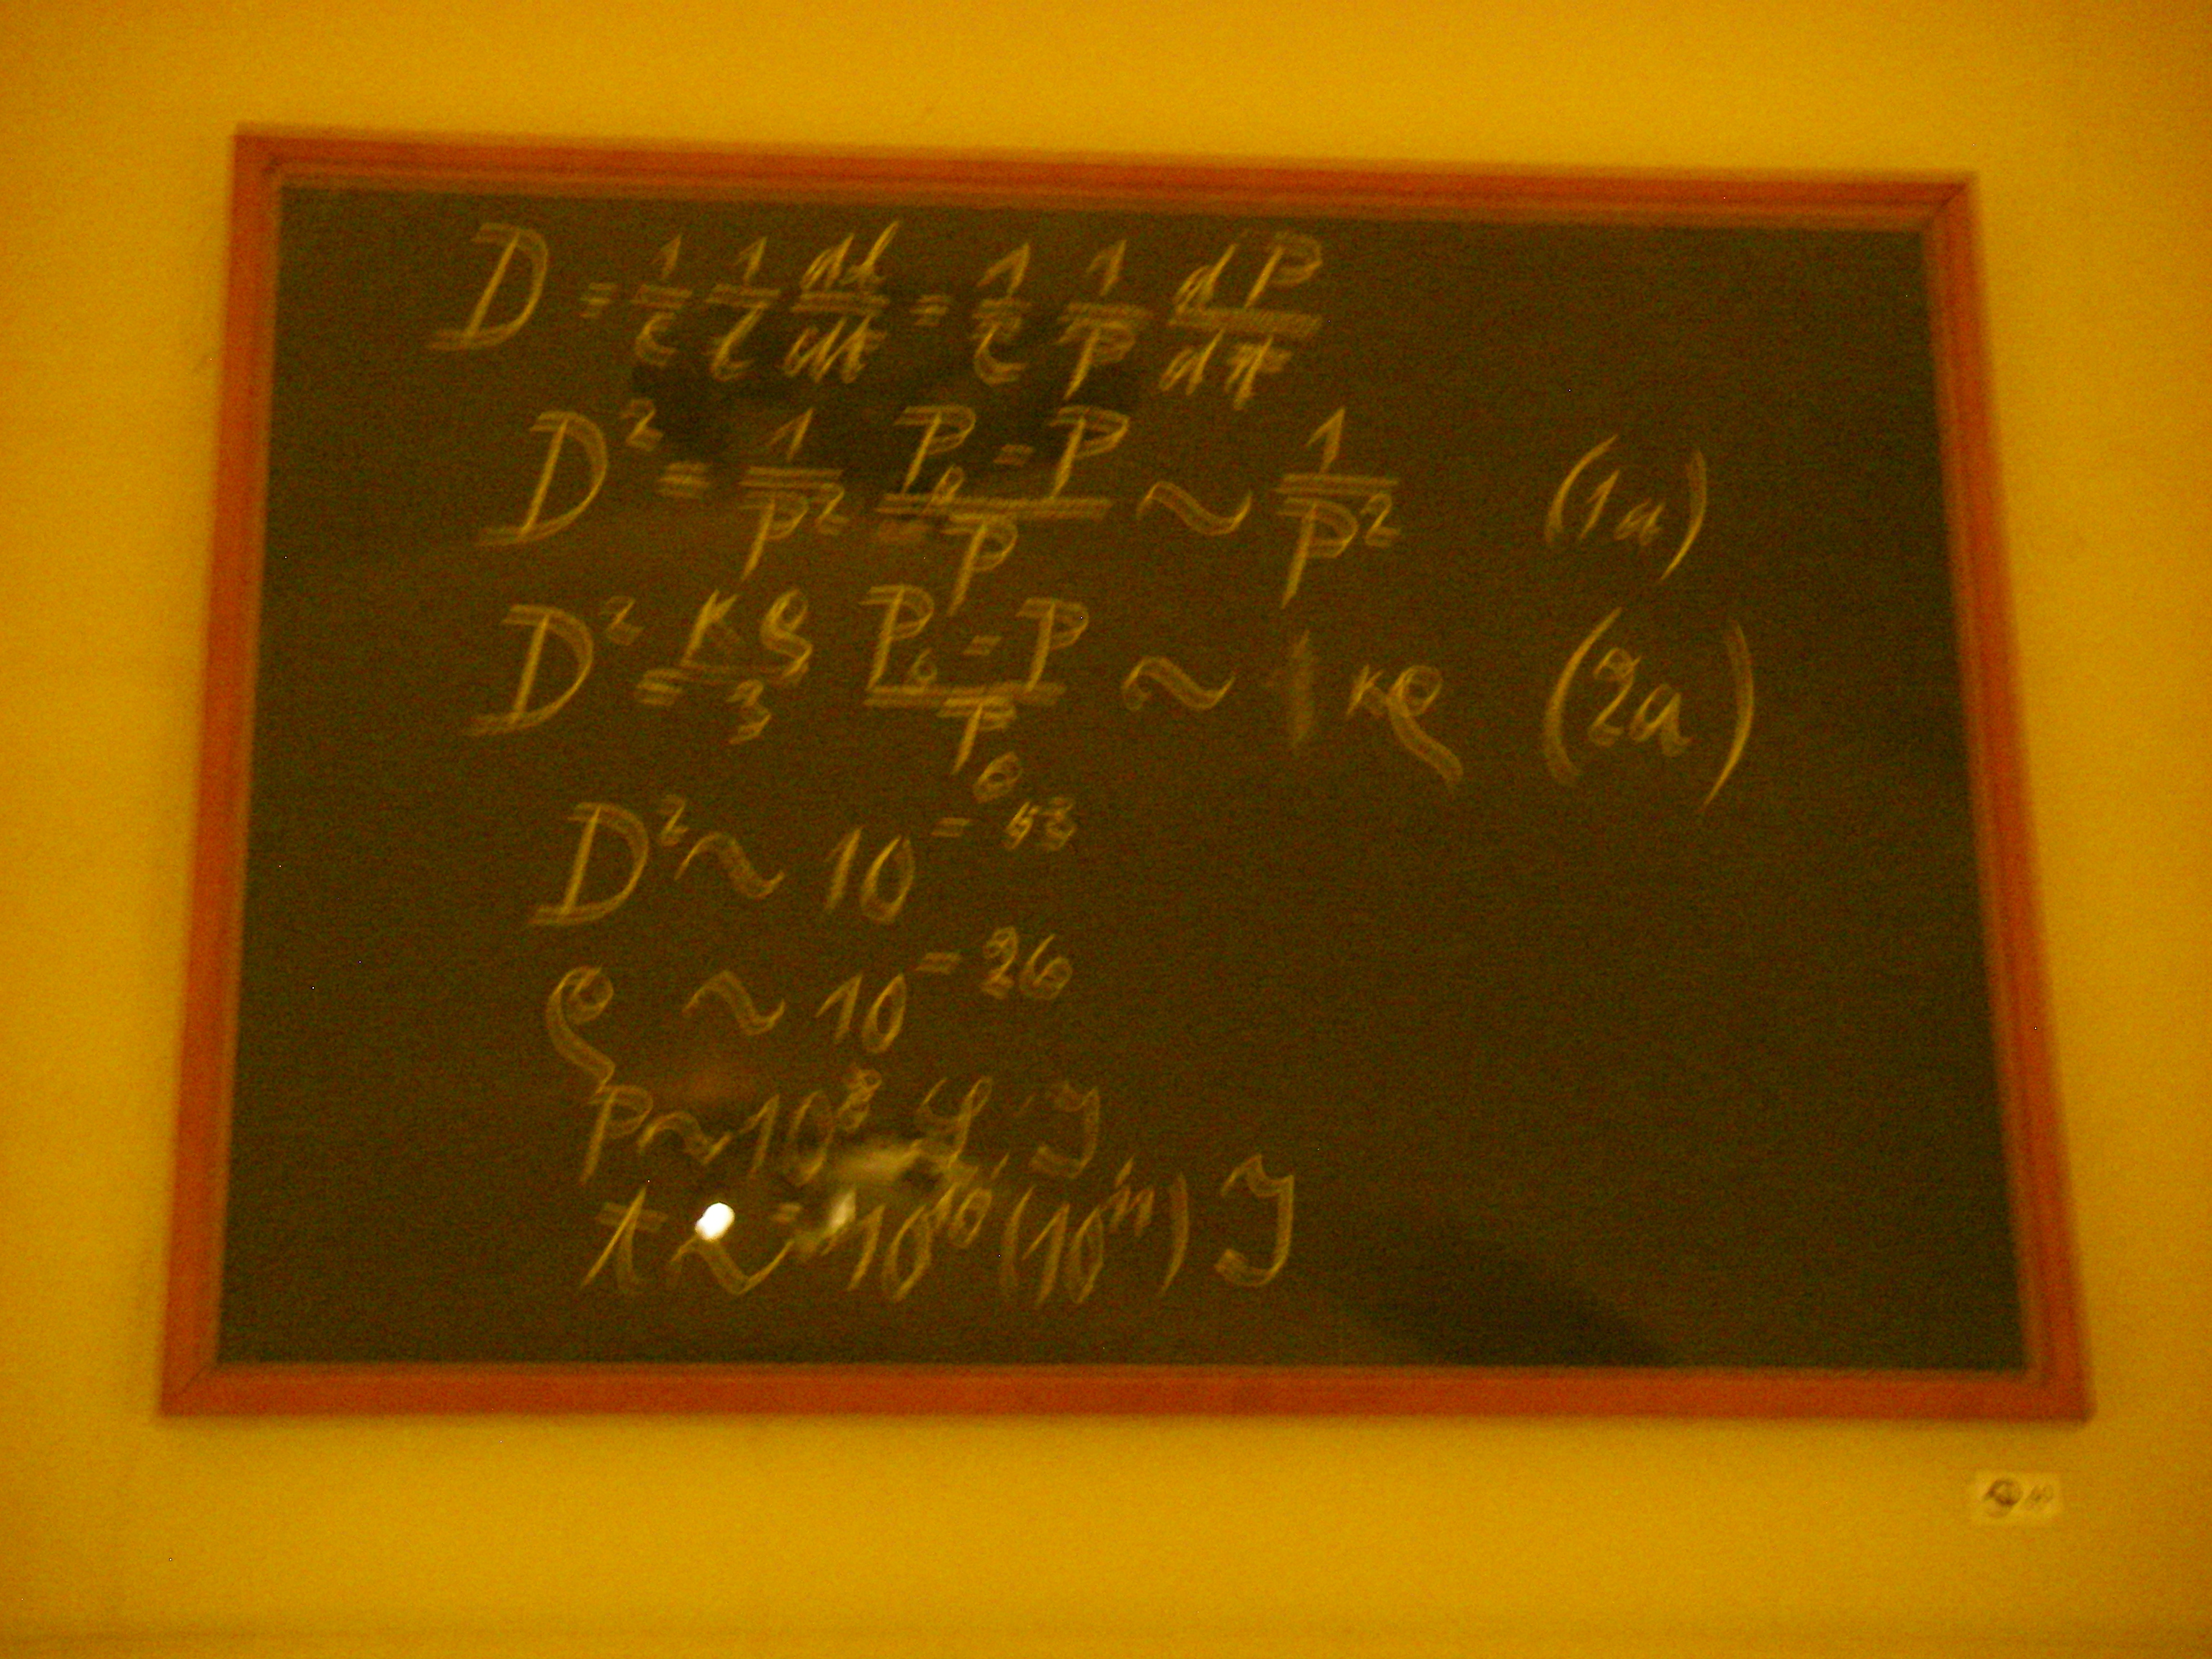 D = 1/c 1/l dl/dt = 1/c 1/P dP/dt
D² = 1/P² P₀-P/P ~ 1/P² (1a)
D² = κρ/3 P₀-P/P₀ ~ 1/3 κρ (2a)
D² ~ 10⁻⁵³
ρ ~ 10⁻²⁶
P ~ 10⁸ L. J
t ~ 10¹⁰ (10¹¹) J